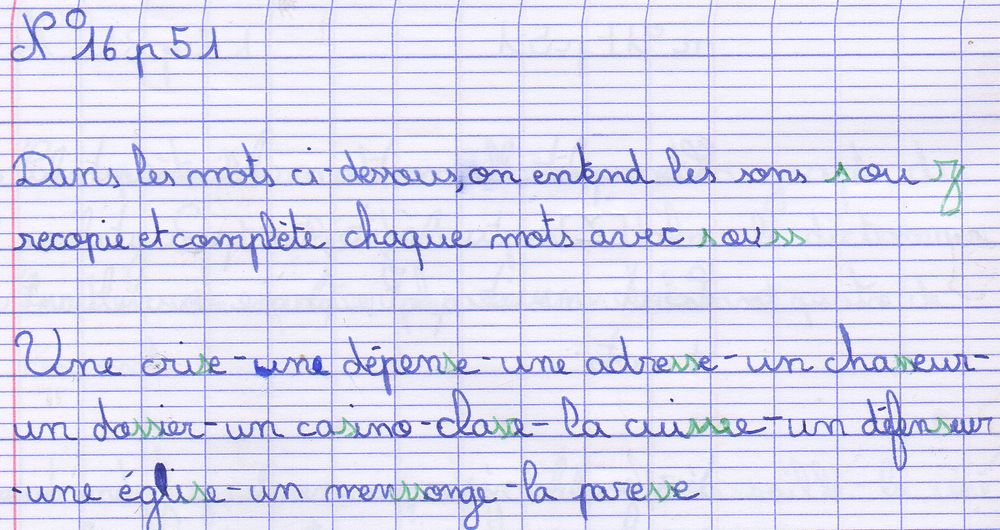 N° 16 p 51
Dans les mots ci-dessous, on entend les sons s ou z
recopie et complète chaque mots avec s ou ss
Une crise - une dépense - une adresse - un chasseur -
un dossier - un casino - classe - la cuisse - un défenseur
- une église - un menssonge - la paresse